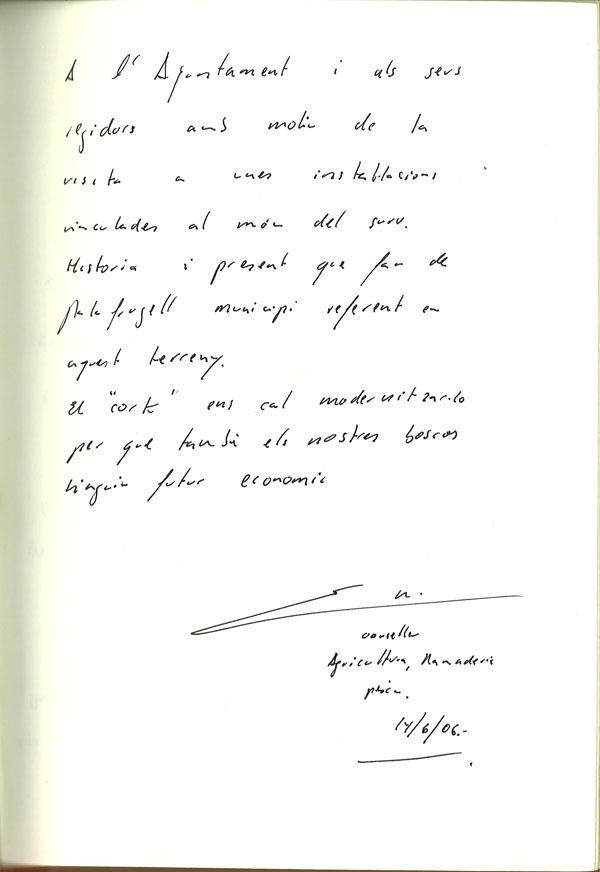 A l'Ajuntament i als seus
regidors amb motiu de la
visita a unes instal·lacions
vinculades al món del suro.
Historia i present que fan de
Palafrugell municipi referent en
aquest terreny.
El "cork" ens cal modernitzar-lo
per que també els nostres boscos
tinguin futur economic
conseller
Agricultura, Ramaderia
pesca.
14/6/06.-